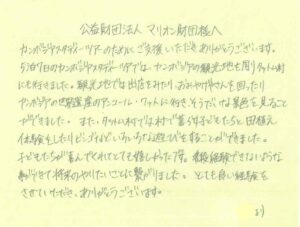 公益財団法人 マリオン財団様へ
カンボジアスタディーツアーのためにご支援いただきありがとうございます。
5泊7日のカンボジアスタディーツアーでは、カンボジアの観光地を周りタットム村
にも行きました。観光地では出店をみたり、おみやげやさんを回ったり
カンボジアの世界遺産のアンコール・ワットに行きそうだいな景色を見ること
ができました。また、タットム村では村で暮らす子どもたちと田植え
体験をしたりビンゴなどいろいろな遊びをすることができました。
子どもたちが喜んでくれてとても嬉しかったです。普段経験できないような
ができて将来のやりたいことに繋がりました。とても良い経験を
させていただき、ありがとうございます。
より